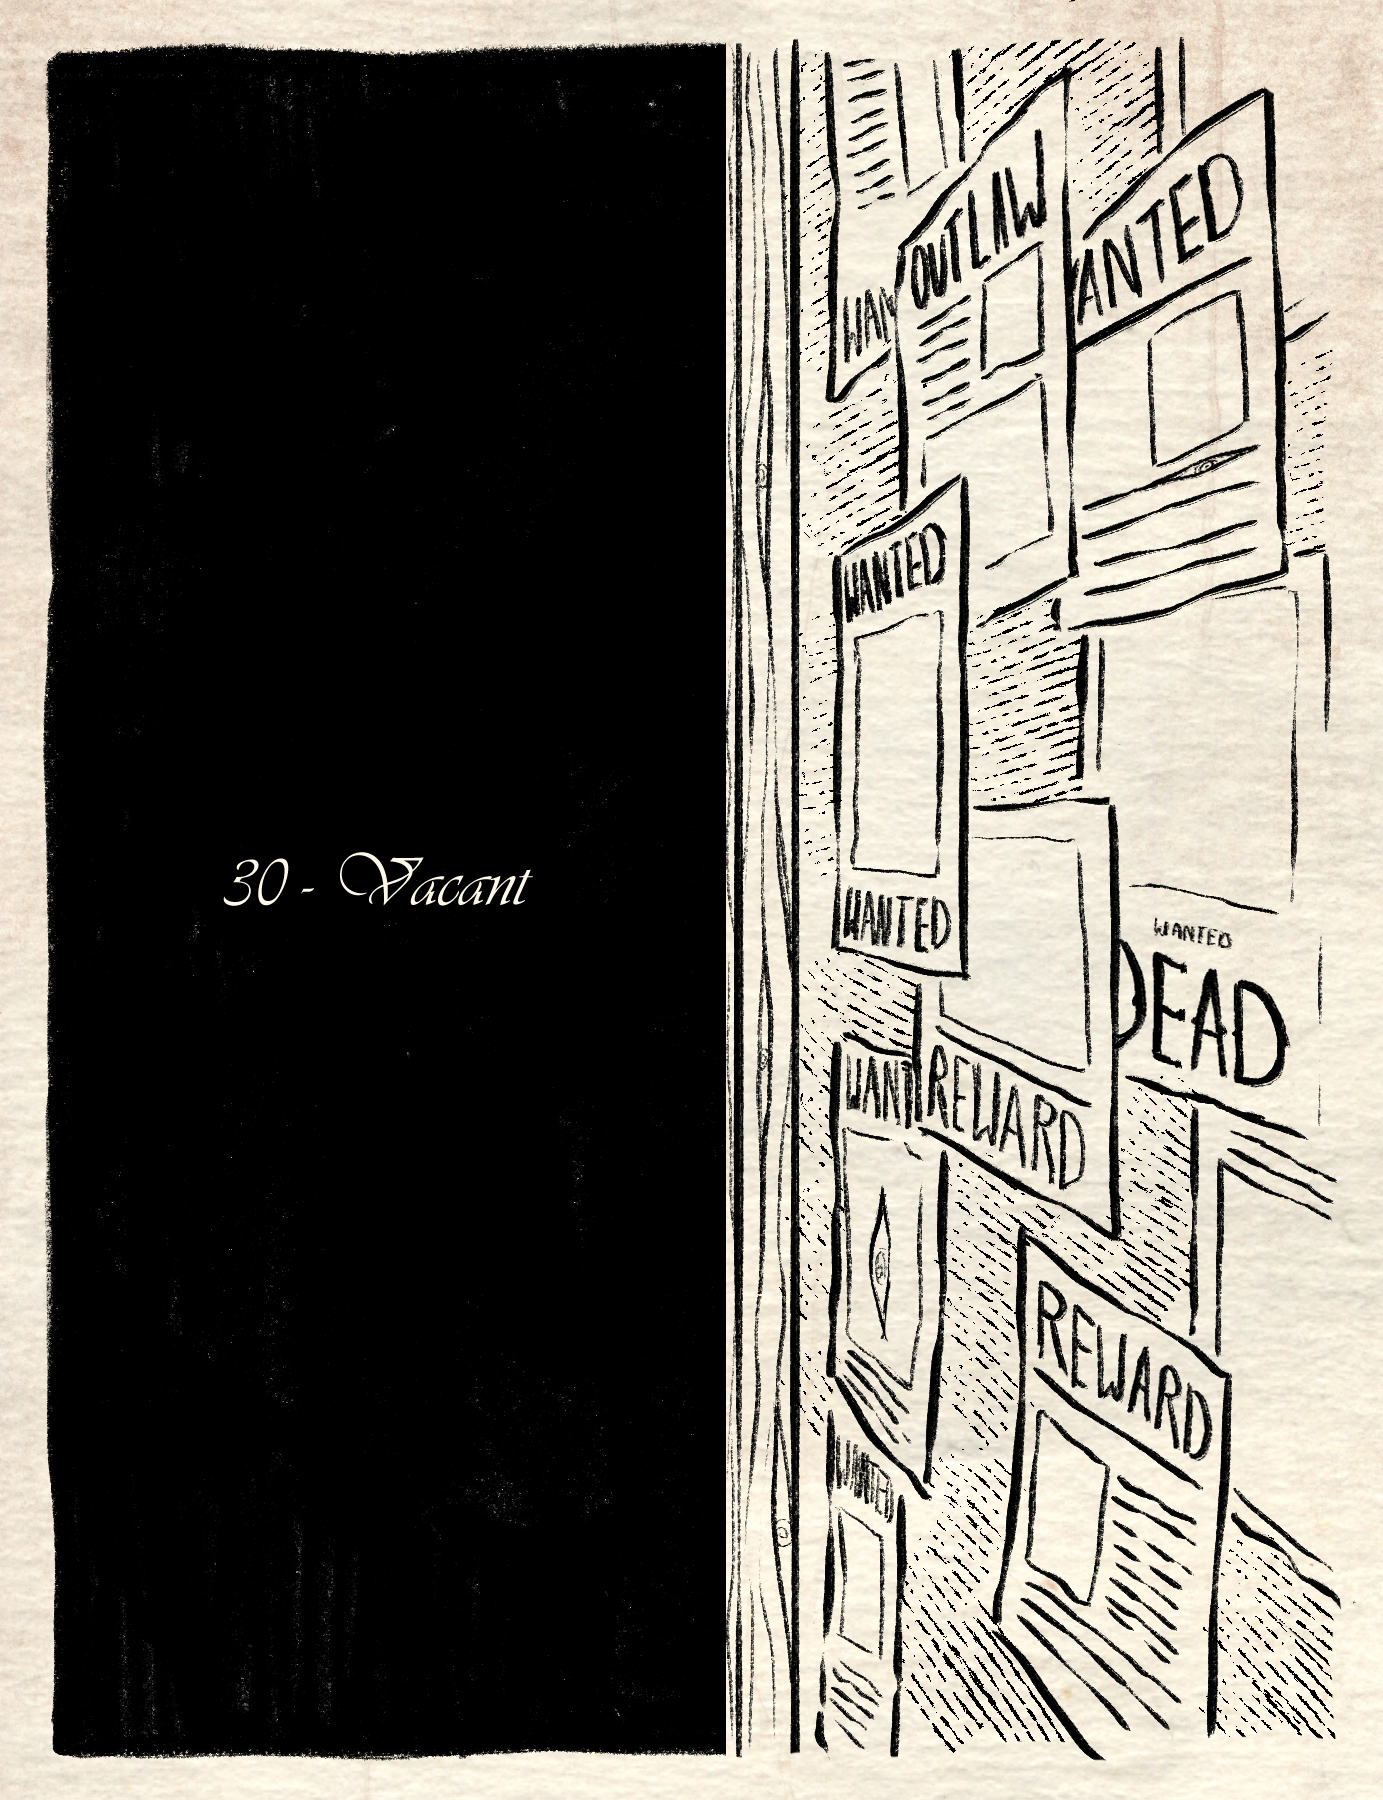 30 - Vacant
WAN
OUTLAW
ANTED
WANTED
WANTED
WANTED
DEAD
WANT
REWARD
REWARD
WANTED